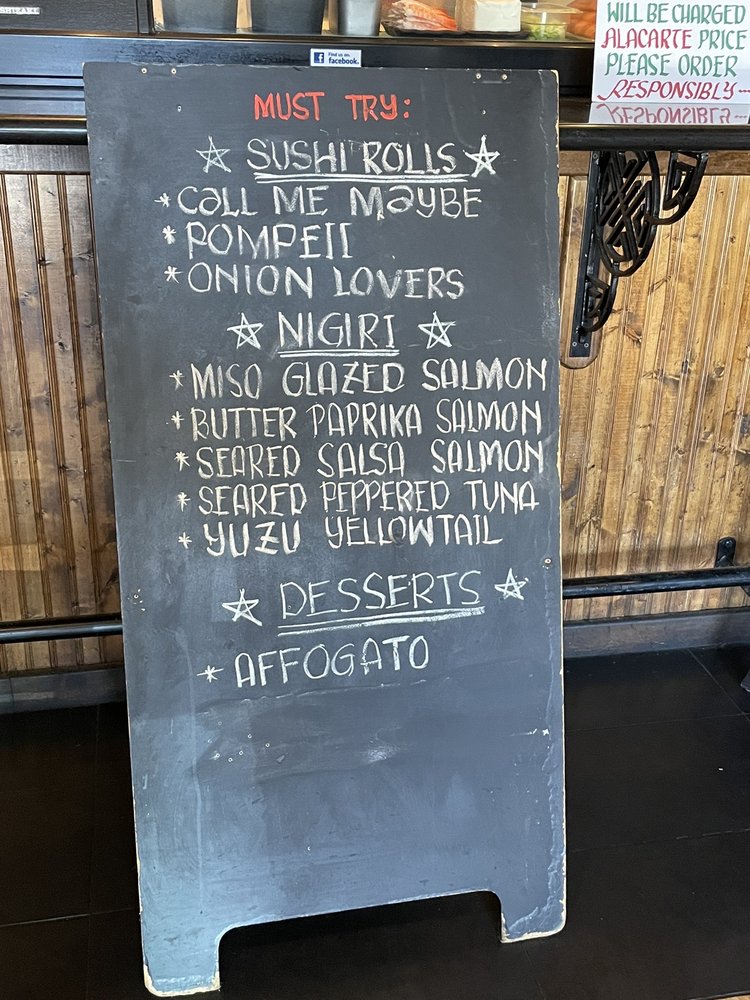 Find us on
facebook.
WILL BE CHARGED
ALACARTE PRICE
PLEASE ORDER
RESPONSIBLY
MUST TRY:
SUSHI ROLLS
* CALL ME MAYBE
* POMPEII
* ONION LOVERS
NIGIRI
* MISO GLAZED SALMON
* BUTTER PAPRIKA SALMON
* SEARED SALSA SALMON
* SEARED PEPPERED TUNA
* YUZU YELLOWTAIL
DESSERTS
* AFFOGATO